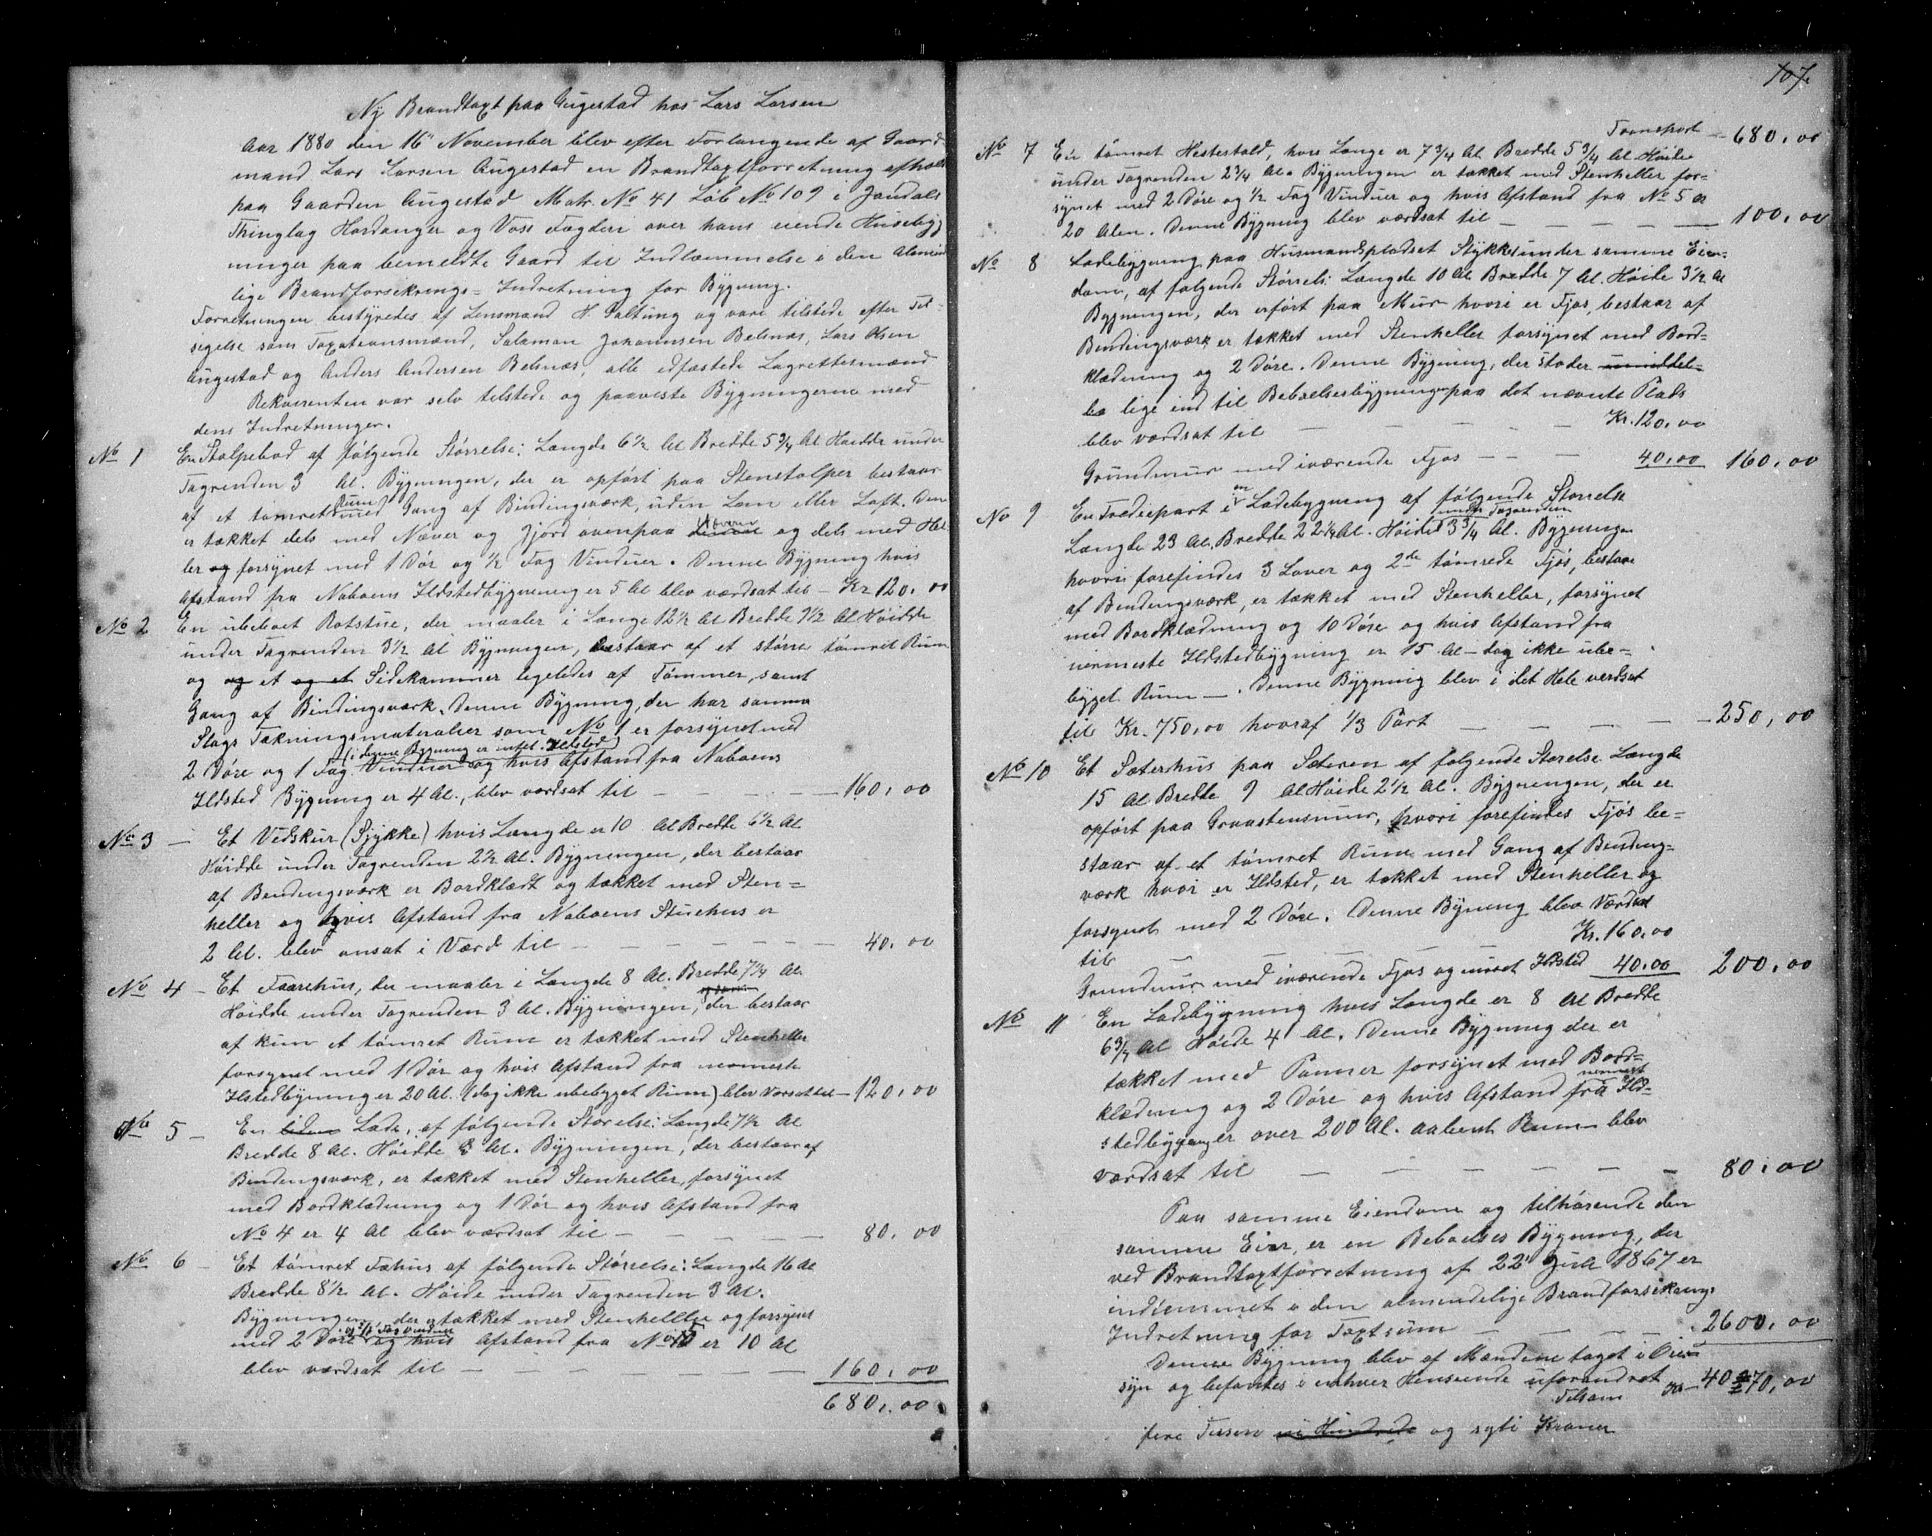 Ny Brandtaxt paa Augestad hos Lars Larsen
Aar 1880 den 16 November blev efter Forlangende af Gaard
mand Lars Larsen Augestad en Brandtaxtforretning afhol
paa Gaarden Augestad Matr. No 41 Löb No 109 i Jondals
Thinglag Hardanger og Voss Fogderi over hans eiende Husebyg
ninger paa bemeldte Gaard til Indlæmmelse i den Almin
lige Brandforsikrings= Indretning for Bygning.
Forretningen bestyredes af Lensmand H. Saltung og vare tilstede efter Til=
sigelse som Taxationsmænd, Salamon Johannsen Belsnæs, Lars Olsen
Augestad og Anders Andersen Belsnæs, alle edfæstede Lagrettesmænd
Rekvirenten var selv tilstede og paaviste Bygningerne med
dens Indretninger.
No 1 En Stolpebod af følgende Størrelse: Længde 6½ Al Bredde 5¾ Al Høidde under
Tagrenden 3 Al. Bygningen, der er opført paa Stenstolper bestaar
af et tømret Rum med Gang af Bindingsværk, uden Lem eller Loft. Den
er tækket dels med Næver og Jjord ovenpaa Næveren og dels med Hel
ler og forsynet med 1 Dør og ½ Fag Vinduer. Denne Bygning hvis
Afstand fra Naboens Ildstedbygning er 5 Al blev værdsat til – Kr 120,00
No 2 En ubeboet Rotstue, der maaler i Længe 12½ Al Bredde 9½ Al Høidde
under Tagrenden 3½ Al Bygningen, bestaar af et større tømret Rum
og og et og et Sidekammer ligeledes af Tømmer, samt
Gang af Bindingsværk. Denne Bygning, der har samme
Slags Tækningsmaterialier som No 1 er forsynet med
(i denne Bygning er intet Ildsted)
2 Døre og 1 Fag Vinduer og hvis Afstand fra Naboens
Ildsted Bygning er 4 Al., blev værdsat til – – – – 160,00
No 3 – Et Vedskur (Sjykke) hvis Længde er 10 Al Bredde 6½ Al
Høidde under Tagrenden 2½ Al. Bygningen, der bestaar
af Bindingsværk er Bordklædt og tækket med Sten=
heller og hvis Afstand fra Naboens Stuehus er
2 Al. blev ansat i Værd til – – – – – – 40,00
No 4 – Et Faarehus, der maaler i Længde 8 Al. Bredde 7¼ Al
Høidde under Tagrenden 3 Al. Bygningen, der bestaar
af kun et tømret Rum er tækket med Stenheller
forsynet med 1 Dør og hvis Afstand fra nærmeste
Ilstedbygning er 20 Al. (dog ikke ubebygget Rum) blev Værsat til – 120,00
No 5 – En liden Lade, af følgende Størelse: Længde 7½ Al
Bredde 8 Al. Høidde 3 Al. Bygningen, der bestaar af
Bindingsværk, er tækket med Stenheller, forsynet
med Bordklædning og 1 Dør og hvis Afstand fra
No 4 er 4 Al blev værdsat til – – – – – 80,00
No 6 – Et tømret Fæhus af følgende Størrelse: Længde 16 Al
Bredde 8½ Al. Høide under Tagrenden 3 Al.
Bygningen, der er tækket med Stenheller og forsynet
med 2 Døre og ½ Fag Vinduer og hvis Afstand fra No er 10 Al
blev værdsat til – – – – – – 160,00
680,00
107.
Transport – 680,00
No 7 En tømret Hestestald, hvis Længe er 7¾ Al Bredde 5¾ Al Høide
under Tagrenden 2¾ Al. Bygningen er tækket med Stenheller for=
synet med 2 Døre og ½ Fag Vinduer og hvis Afstand fra No 5 er
20 Alen. Denne Bygning blev værdsat til – – – – – 100,00
No 8 Ladebygning paa Husmandspladset Stykket under samme Eien=
dom, af følgende Størrelse: Længde 10 Al Bredde 7 Al. Høide 3½ Al
Bygningen, der erført paa Mur hvori er Fjøs, bestaar af
Bindingsværk er tækket med Stenheller forsynet med Bord=
klædning og 2 Døre. Denne Bygning, der støder umiddel=
ba lige ind til Bebøelsesbygningen paa det nævnte Plads
blev værdsat til – – – – – Kr. 120,00
Grundmur med iværende Fjøs – – – 40,00 160,00
No 9 En Trediepart i en Ladebygning af følgende Størrelse
Længde 23 Al. Bredde 22¼ Al. Høide under Tagrenden 3¾ Al. Bygningen
hvori forefindes 3 Laver og 2de tømrede Fjøs, bestaar
af Bindingsværk, er tækket med Stenheller, forsynet
med Bordklædning og 10 Døre og hvis Afstand fra
nærmeste Ildstedbygning er 15 Al – dog ikke ube=
bygget Rum –. Denne Bygning blev i det Hele værdsat
til Kr. 750,00 hvoraf 1/3 Part – – – – – 250,00
No 10 Et Sæterhus paa Sæteren af følgende Størelse Længde
15 Al Bredde 9 Al Høide 2½ Al. Bygningen, der er
opført paa Graastensmur, hvori forefindes Fjøs be=
staar af et tømret Rum med Gang af Binding=
værk hvori er Ildsted, er tækket med Stenheller og
forsynet med 2 Døre. Denne Bygning blev Værdsat
til – – – – – Kr. 160,00
Grundmur med iværende Fjøs og muret Ildsted 40,00 200,00
No 11 En Ladebygning hvis Længde er 8 Al Bredde
6¾ Al Høide 4 Al. Denne Bygning der er
tækket med Panner forsynet med Bord=
klædning og 2 Døre og hvis Afstand fra nærmest Ild=
stedbygning er over 200 Al. aabent Rum blev
værdsat til – – – – – – 80,00
Paa samme Eiendom og tilhørende den
samme Eier, er en Beboelses Bygning, der
ved Brandtaxtforretning af 22 Juli 1867 er
indlemmet i den almindelige Brandforsikrings
Indretning for Taxtsum – – – – 2600,00
Denne Bygning blev af Mændene taget i Øien
syn og befantes i enhver Henseende uforandret
Tilsam Kr – 4070,00
fire Tusene ni Hundrede og sytti Kroner